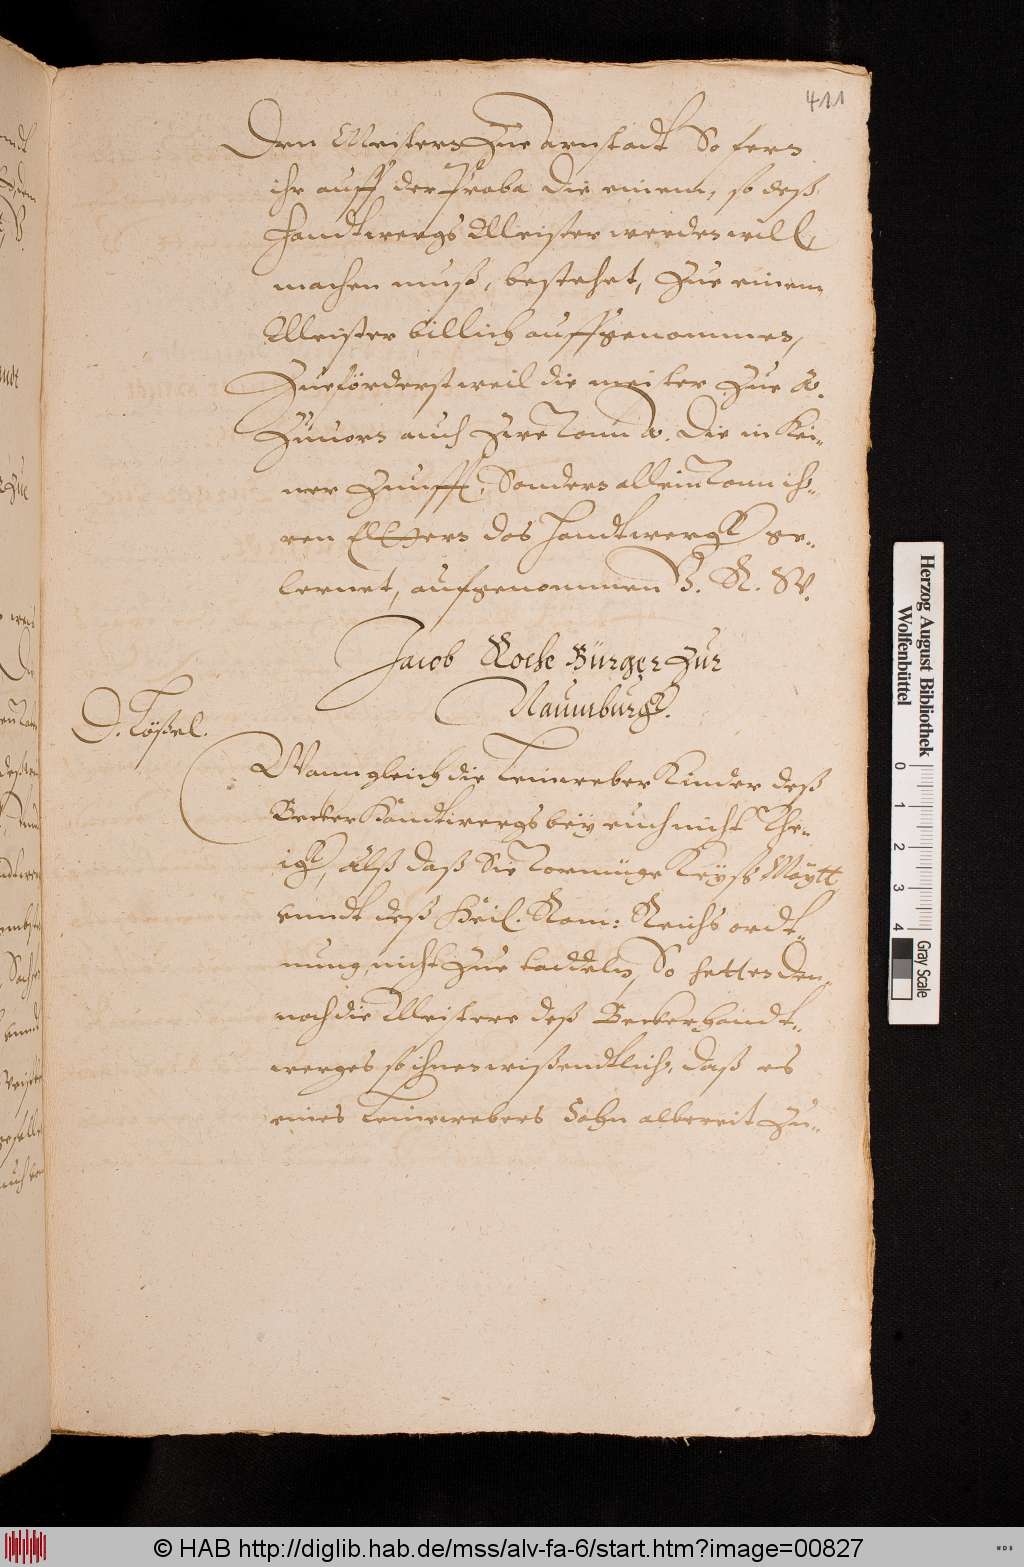 411
Den Meistern Zue Arnstadt So fern
ihr auff der Proba die einem, so deß
Handtwergs Meister werden will,
machen muß, bestehet, Zue einem
Meister billich auffgenommen,
Zueförderst weil die meister Zue A.
Zuuorn auch Zwe von A. die in Kei-
ner Zunfft, Sondern allein von ih-
ren Eltern das Handtwergk ge-
lernet, aufgenommen V. R. W.
Jacob Koche Bürger Zur
Naumburgk.
D. Tößel.
Wann gleich die Leinweber Kinder deß
Becker Handtwergs bey euch nicht Vhe-
igk, Alß daß Sie vermüge Keyß Maytt
vnndt deß Heil. Rom: Reichs ordt-
nung, nicht Zue taddeln, So hetten den-
noch die Meistere deß Becker Handt-
werges so ihnen wißendtlich, daß es
eines Leinewebers Sohn albereit zu-
Herzog August Bibliothek
Wolfenbüttel
0 1 2 3 4
Gray Scale
© HAB http://diglib.hab.de/mss/alv-fa-6/start.htm?image=00827